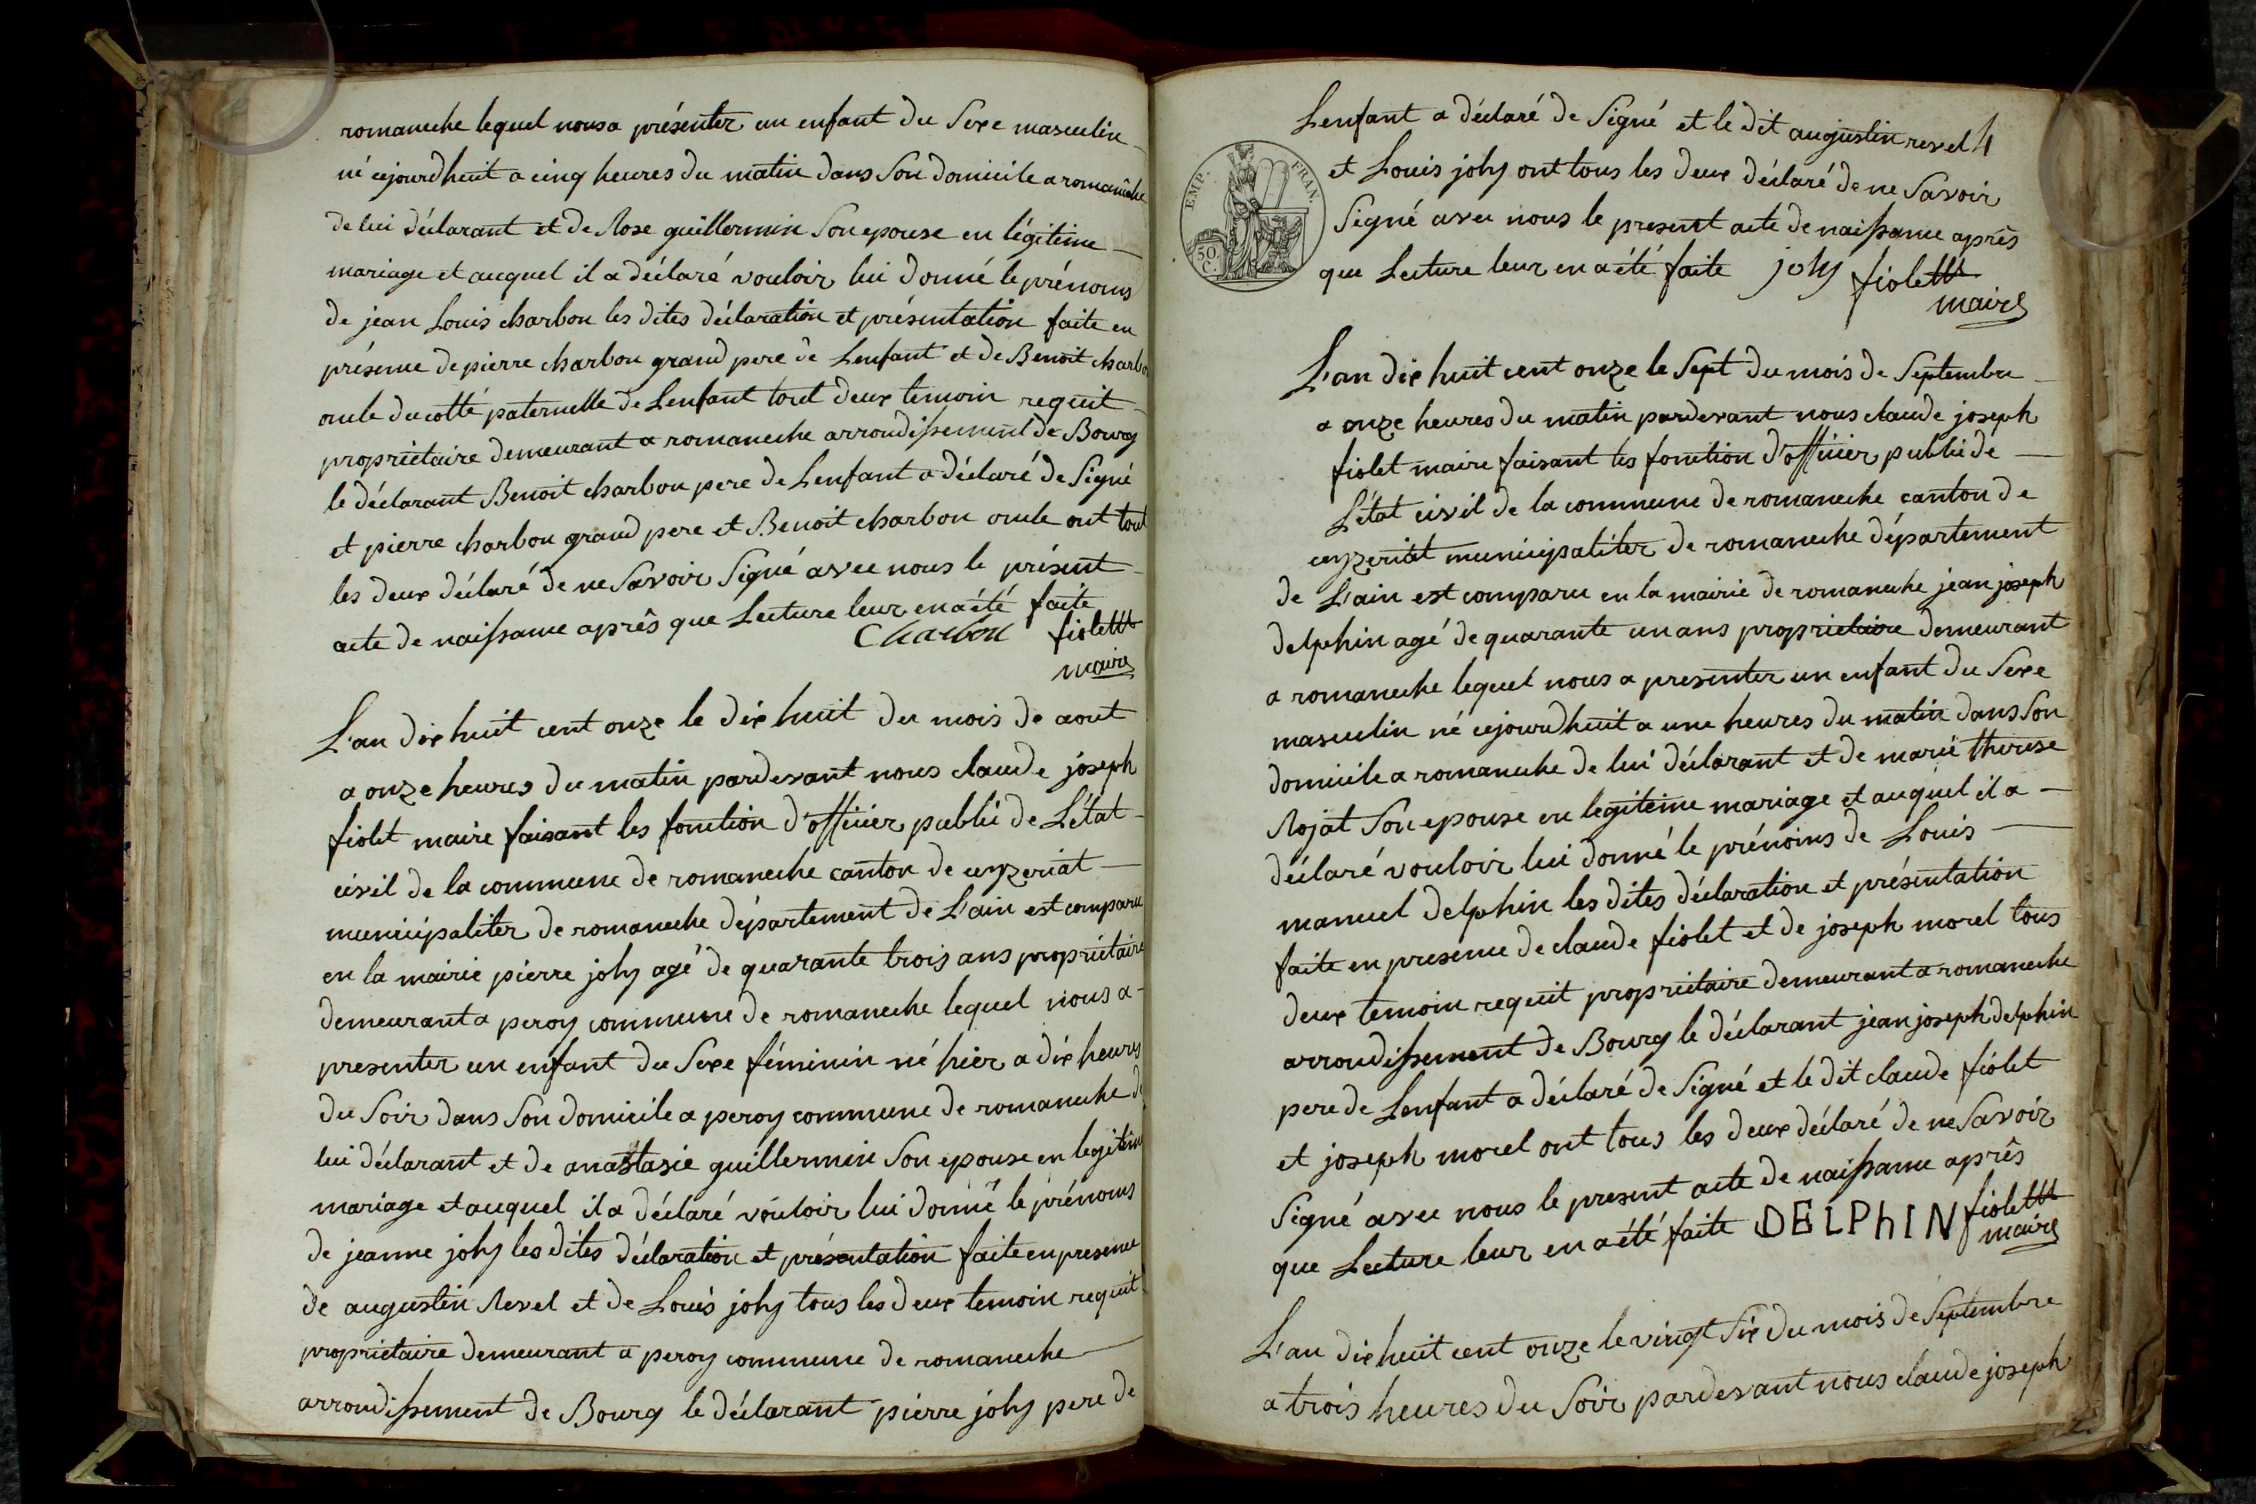 romaneche lequel nous a présenter un enfant du Sexe masculin
né cejourdhuit a cinq heures du matin dans Son domicile a romanêche
de lui déclarant et de Rose guillermin Son epouse en légitime
mariage et auquel il a déclaré vouloir lui donné le prénoms
de jean Louis charbon les dites déclaration et présentation faite en
présence de pierre charbon grand pere de Lenfant et de Benoit charbon
oncle du cotté paternelle de Lenfant tout deux temoin requit
propriétaire demeurant a romaneche arrondissement de Bourg
le déclarant Benoit charbon pere de Lenfant a déclaré de Signé
et pierre charbon grand pere et Benoit charbon oncle ont tout
les deux déclaré de ne Savoir Signé avec nous le présent
acte de naissance après que Lecture leur en a été faite
Charbon fiolett
maire
L'an dix huit cent onze le dix huit du mois de aout
a onze heures du matin pardevant nous claude joseph
fiolet maire faisant les fonction d'officier public de L'état
civil de la commune de romaneche canton de ceyzeriat
municipaliter de romaneche département de L'ain est comparu
en la mairie pierre joly agé de quarante trois ans propriétaire
demeurant a peroy commune de romaneche lequel nous a
presenter un enfant du Sexe féminin né hier a dix heures
du Soir dans Son domicile a peroy commune de romaneche de
lui déclarant et de anastasie guillermin Son epouse en legitime
mariage et auquel il a déclaré vouloir lui donné le prénoms
de jeanne joly les dites déclaration et présentation faite en presence
de augustin Revel et de Louis joly tous les deux temoin requit
propriétaire demeurant a peroy commune de romaneche
arrondissement de Bourg le déclarant pierre joly pere de
Lenfant a déclaré de Signé et le dit augustin revel 4
et Louis joly ont tous les deux déclaré de ne Savoir
Signé avec nous le present acte de naissance après
que Lecture leur en a été faite joly fiolett
maire
EMP. FRAN.
50 C.
L'an dix huit cent onze le Sept du mois de Septembre
a onze heures du matin pardevant nous claude joseph
fiolet maire faisant les fonction d'officier public de
L'état civil de la commune de romaneche canton de
ceyzeriat municipaliter de romaneche département
de L'ain est comparu en la mairie de romaneche jean joseph
delphin agé de quarante un ans propriétaire demeurant
a romaneche lequel nous a presenter un enfant du Sexe
masculin né cejourdhuit a une heures du matin dans Son
domicile a romaneche de lui déclarant et de marie therese
Rojat Son epouse en legitime mariage et auquel il a
déclaré vouloir lui donné le prénoms de Louis
manuel delphin les dites déclaration et présentation
faite en presence de claude fiolet et de joseph morel tous
deux temoin requit propriétaire demeurant a romaneche
arrondissement de Bourg le déclarant jean joseph delphin
pere de Lenfant a déclaré de Signé et le dit claude fiolet
et joseph morel ont tous les deux déclaré de ne Savoir
Signé avec nous le present acte de naissance après
que Lecture leur en a été faite DELPhIN fiolett
maire
L'an dix huit cent onze le vingt Six du mois de Septembre
a trois heures du Soir pardevant nous claude joseph